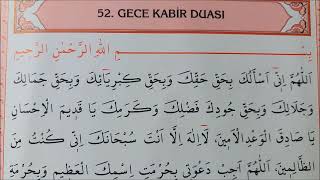 52. GECE KABİR DUASI
بِسْمِ اللّٰهِ الرَّحْمٰنِ الرَّحِيمِ
اَللّٰهُمَّ اِنّٖى اَسْأَلُكَ بِحَقِّ حَقِّكَ وَبِحَقِّ كِبْرِيَائِكَ وَبِحَقِّ جَمَالِكَ
وَجَلَالِكَ وَبِحَقِّ جُودِكَ فَضْلِكَ وَكَرَمِكَ يَا قَدِيمَ الْاِحْسَانِ
يَا صَادِقَ الْوَعْدِ الْاَمِينَ، لَااِلٰهَ اِلَّا اَنْتَ سُبْحَانَكَ اِنّٖى كُنْتُ مِنَ
الظَّالِمِينَ، اَللّٰهُمَّ اَجِبْ دَعْوَتٖى بِحُرْمَتِ اِسْمِكَ الْعَظِيمِ وَبِحُرْمَةِ